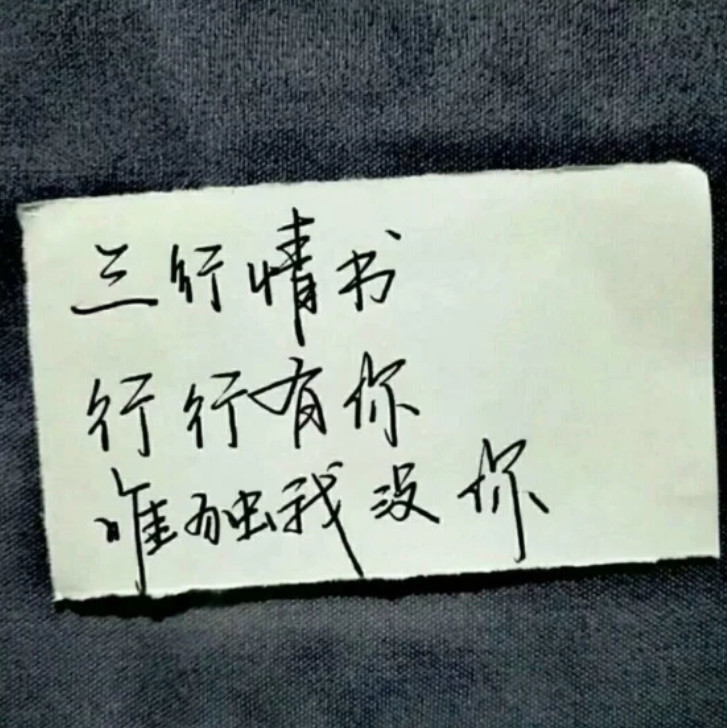 三行情书
行行有你
唯独我没你